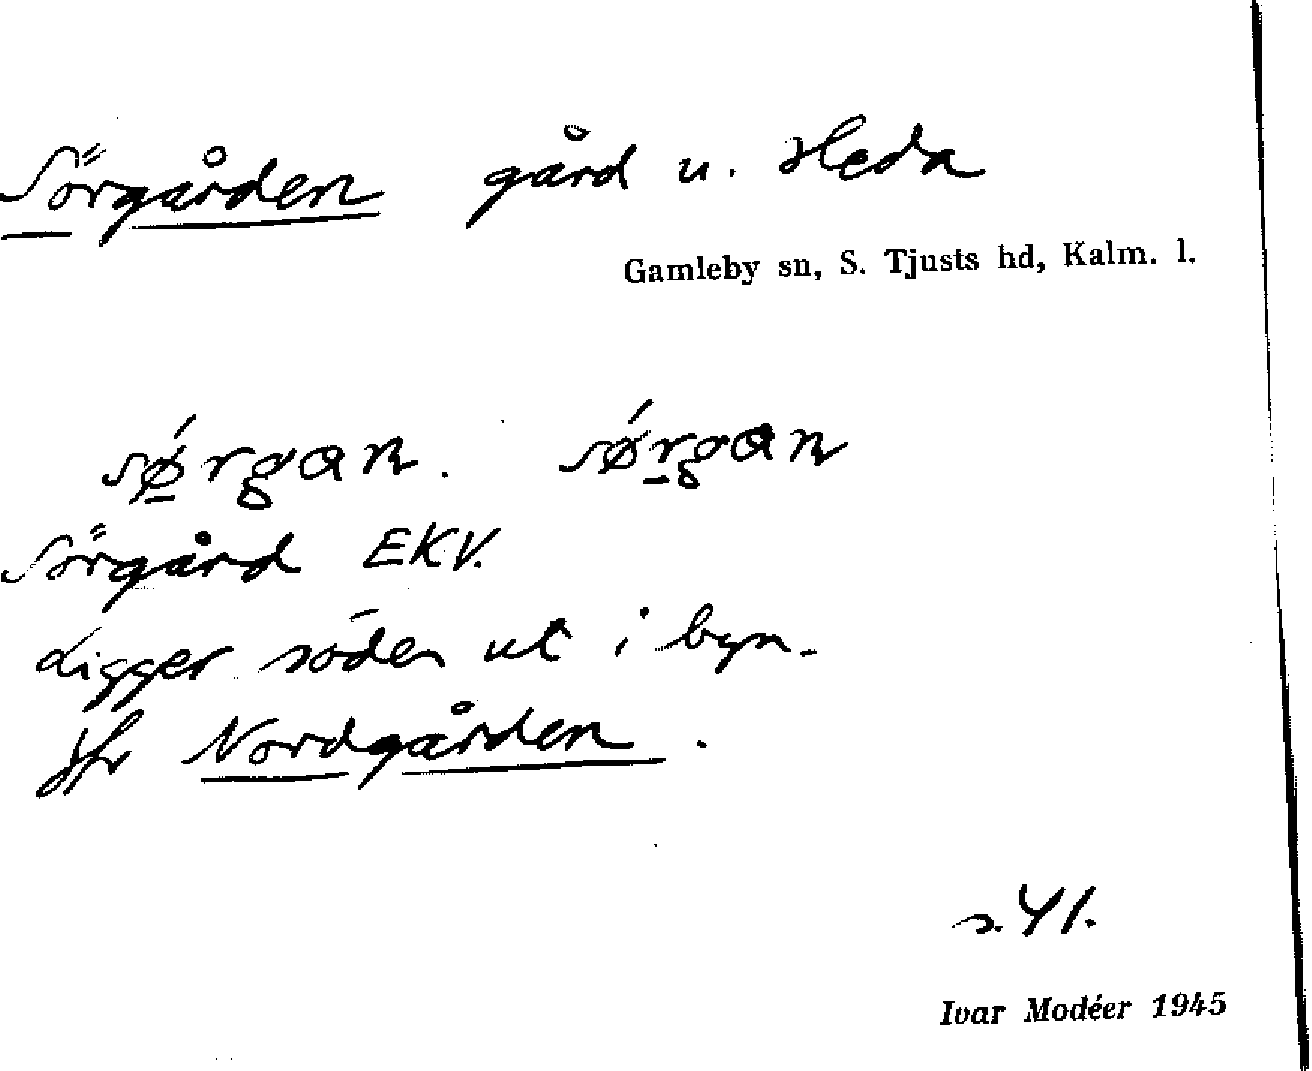 Sörgården gård u. Heda
Gamleby sn, S. Tjusts hd, Kalm. l.
sǿ̲rgan. sǿr̲gan
Sörgård EKV.
Ligger söder ut i byn.
Jfr Nordgården.
s. 41.
Ivar Modéer 1945